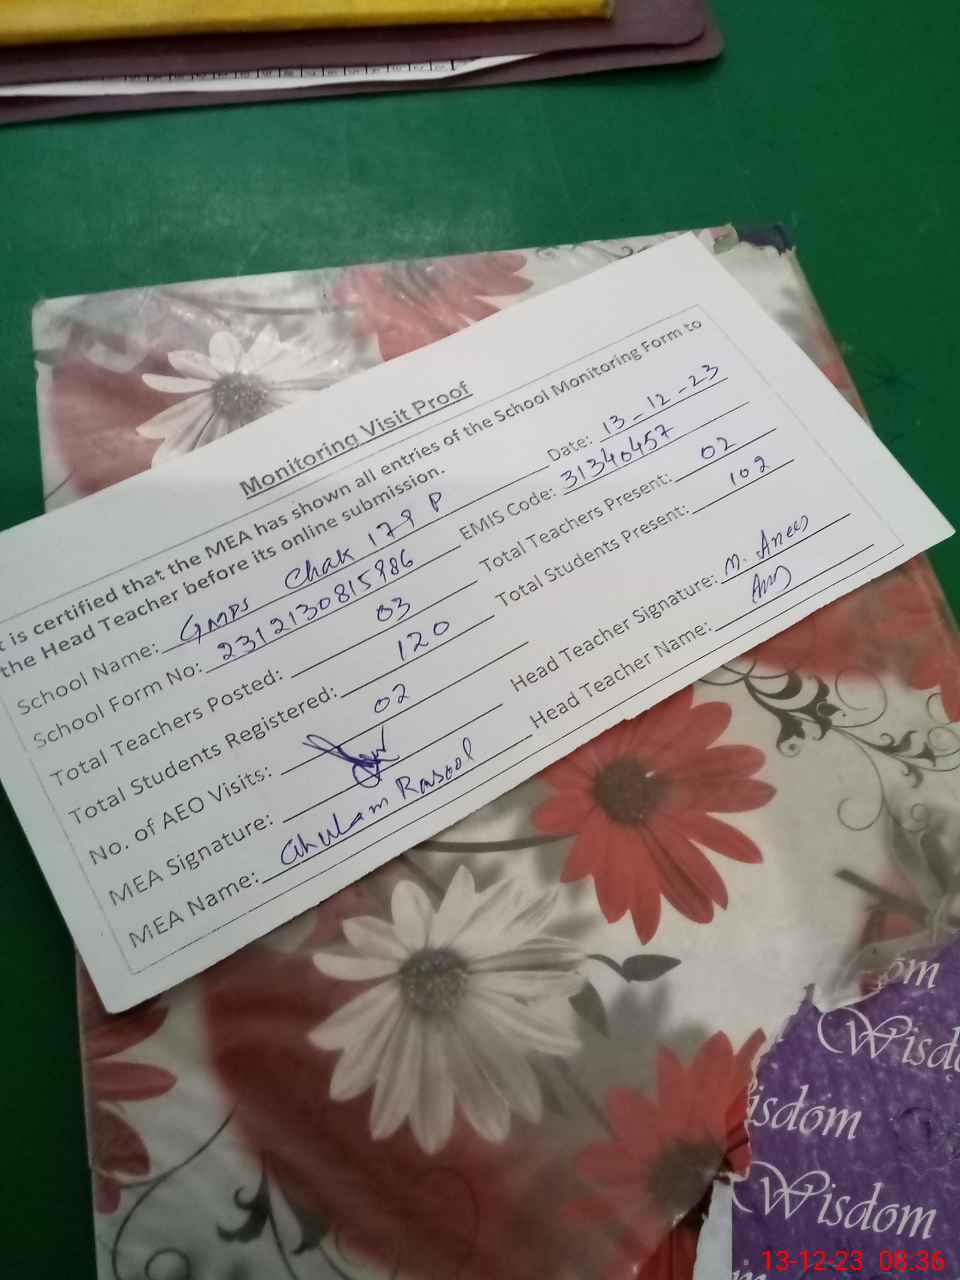 Monitoring Visit Proof
t is certified that the MEA has shown all entries of the School Monitoring Form to
the Head Teacher before its online submission.
School Name: GMPS Chak 179 P Date: 13-12-23
School Form No: 2312130815986 EMIS Code: 31340457
Total Teachers Posted: 03 Total Teachers Present: 02
Total Students Registered: 120 Total Students Present: 102
No. of AEO Visits: 02
MEA Signature: Head Teacher Signature: M. Anees
MEA Name: Ghulam Rasool Head Teacher Name:
om
Wisdo
isdom
Wisdom
13-12-23 08:36